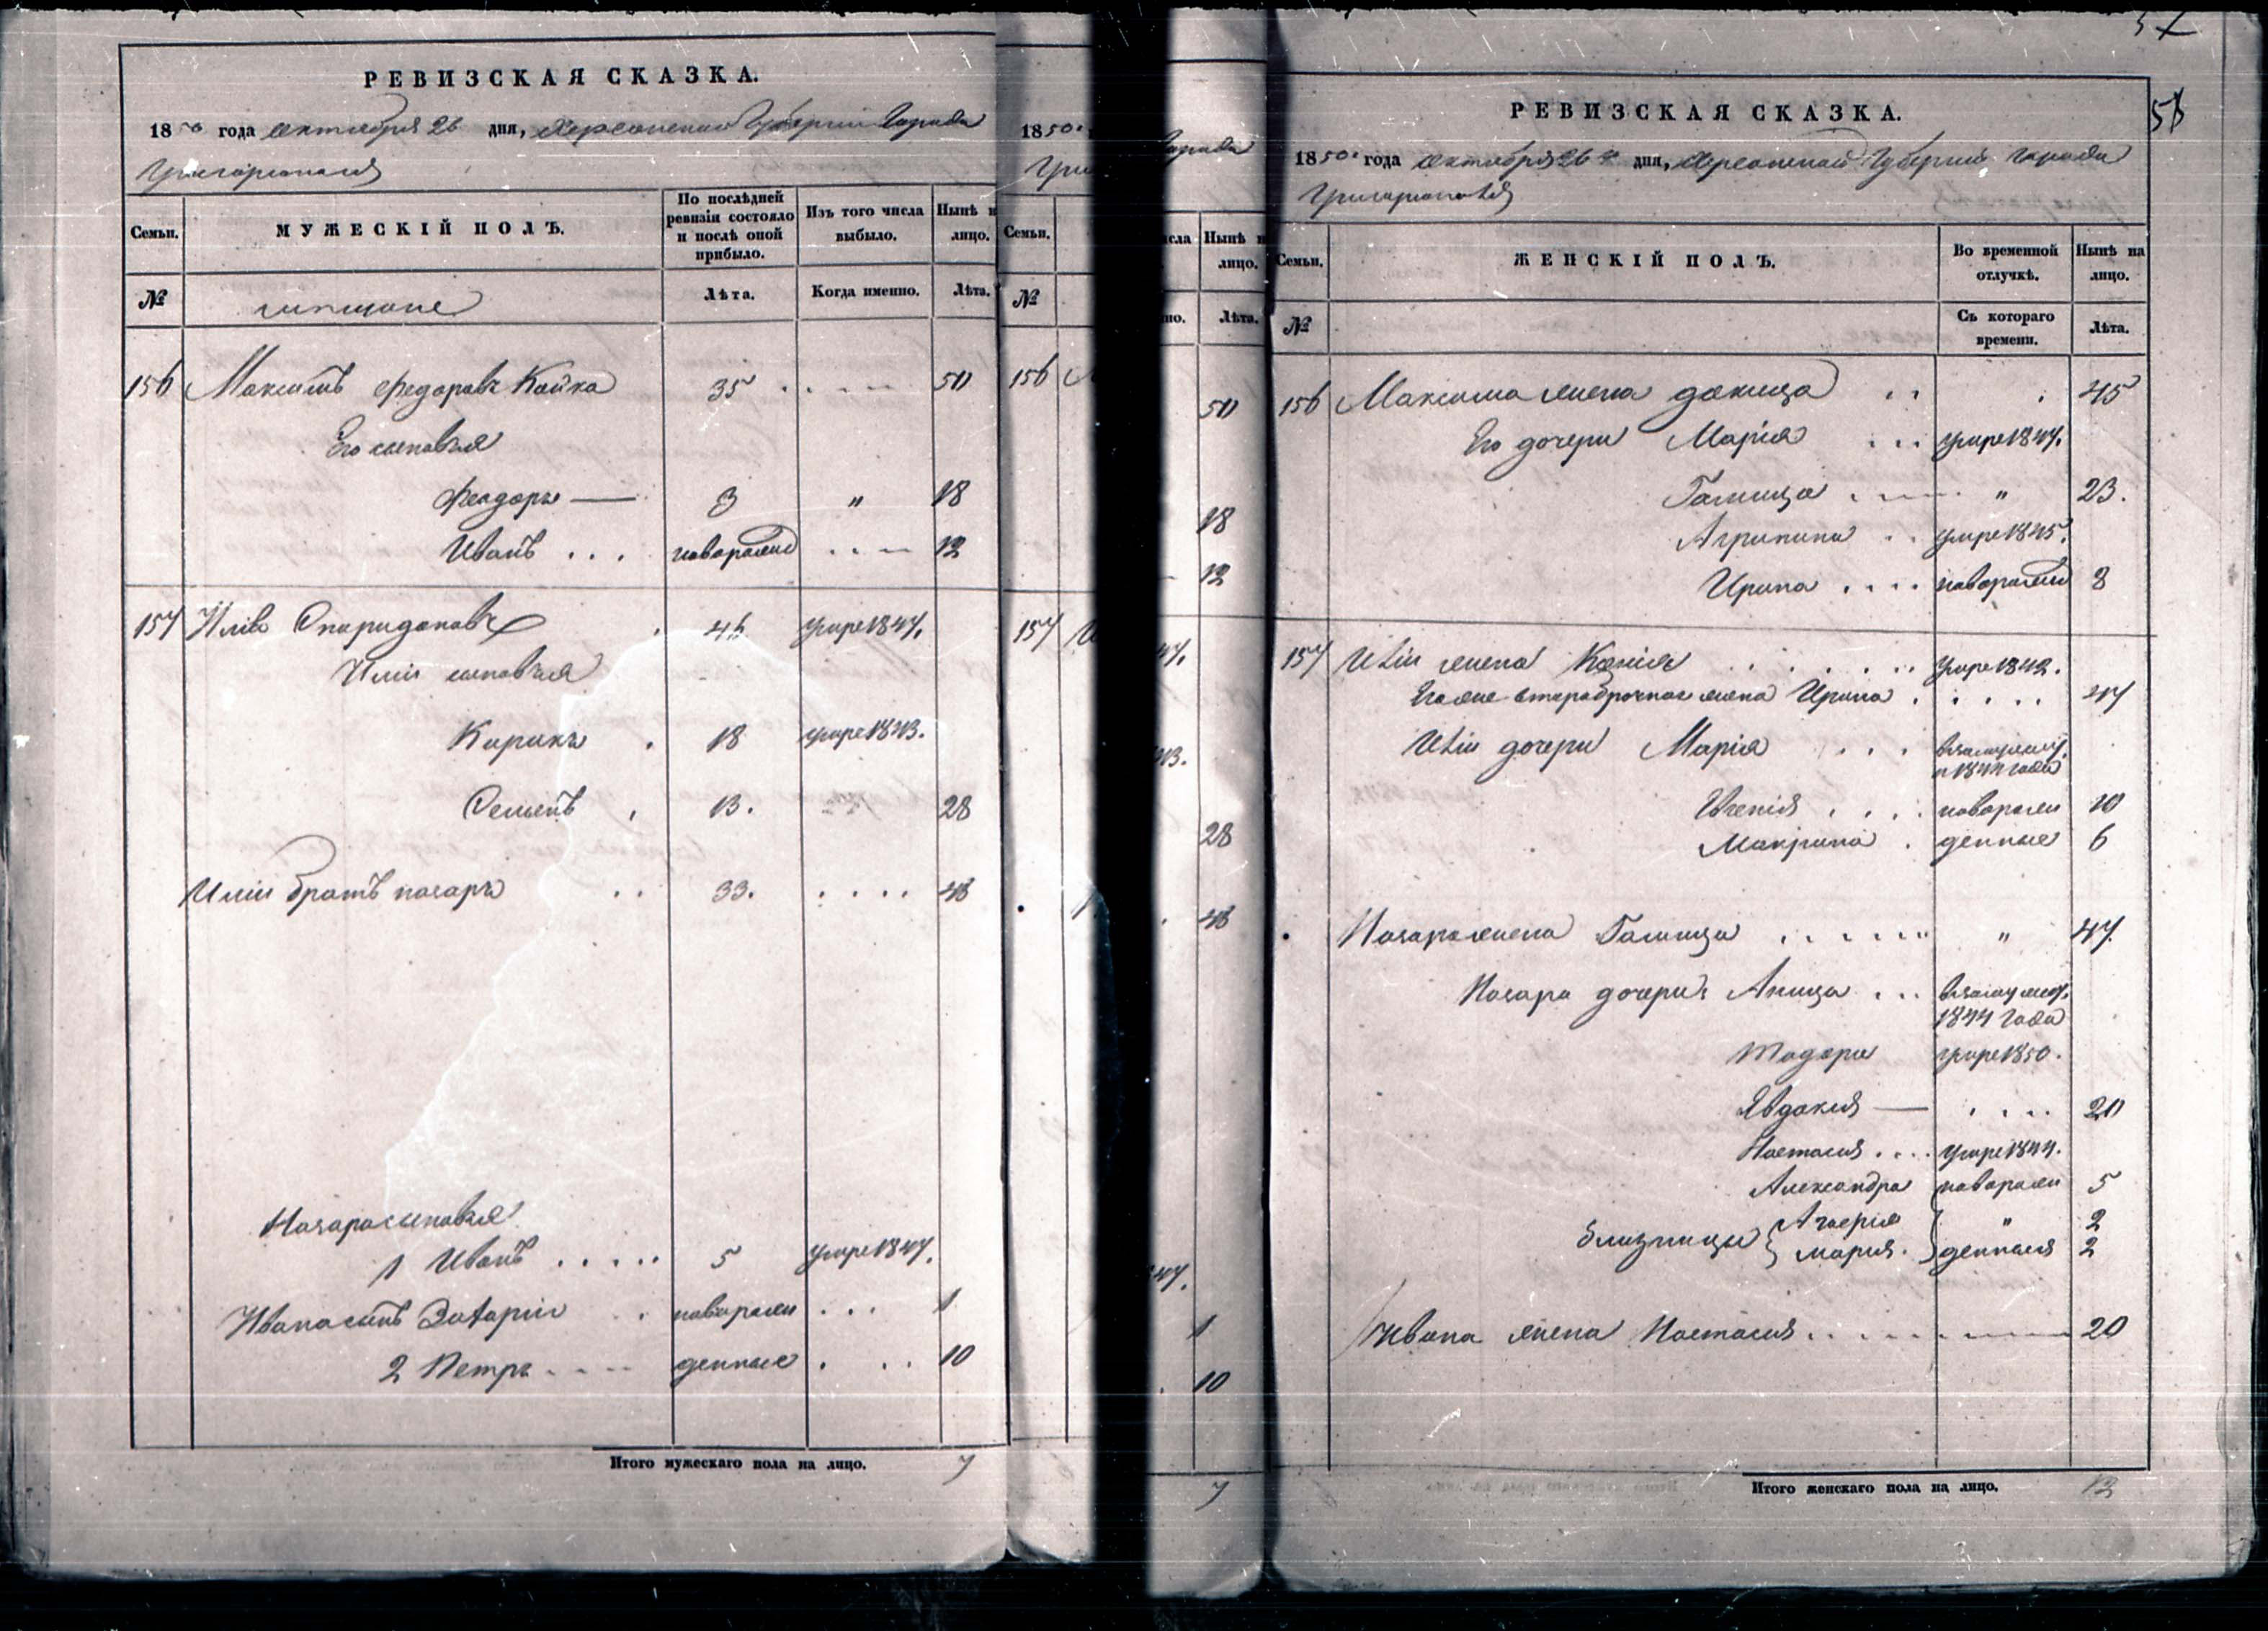 РЕВИЗСКАЯ СКАЗКА.
1850 года октября 26 дня, Херсонской Губернии Города
Григориополя
Семьи. МУЖЕСКІЙ ПОЛЪ. По послѣдней ревизіи состояло и послѣ оной прибыло. Изъ того числа выбыло. Нынѣ н лицо.
№ мѣщане Лѣта. Когда именно. Лѣта.
156 Максимъ Федоровъ Койка 35 50
Его сыновья
Феодоръ 3 " 18
Иванъ новорожд 12
157 Илія Спиридоновъ 46 умре 1847.
Иліи сыновья
Кирикъ 18 умре 1843.
Семенъ 13. 28
Иліи братъ Назаръ 33. 48
Назара сыновья
1 Иванъ 5 умре 1847.
Ивана сынъ Захарій новорож 1
2 Петръ денные 10
Итого мужескаго пола на лицо. 7
1850
Гри
Семьи.
№
156 М
157 И
Города
исла Нынѣ н
лицо.
но. Лѣта.
50
18
12
47.
43.
28
48
47.
1
10
7
57
58
РЕВИЗСКАЯ СКАЗКА.
1850 года октября 26 дня, Херсонской Губерніи города
Григориополя
Семьи. ЖЕНСКІЙ ПОЛЪ. Во временной отлучкѣ. Нынѣ на лицо.
№ Съ котораго времени. Лѣта.
156 Максима жена Докица 45
Его дочери Марія умре 1847.
Гафица " 23.
Агрипина умре 1845.
Ирина новорожд 8
157 Иліи жена Ксенія умре 1842.
Его же второбрачная жена Ирина 47
Иліи дочери Марія взамужест.
в 1844 года
Евгенія новорож 10
Макрина денные 6
Назара жена Гафица " 47.
Назара дочери: Аница взамужест.
1844 года
Тодора умре 1850.
Явдокия 20
Настасия умре 1844.
Александра новорож 5
близницы Глекерія " 2
Мария денныя 2
Ивана жена Настасия 20
Итого женскаго пола на лицо. 12